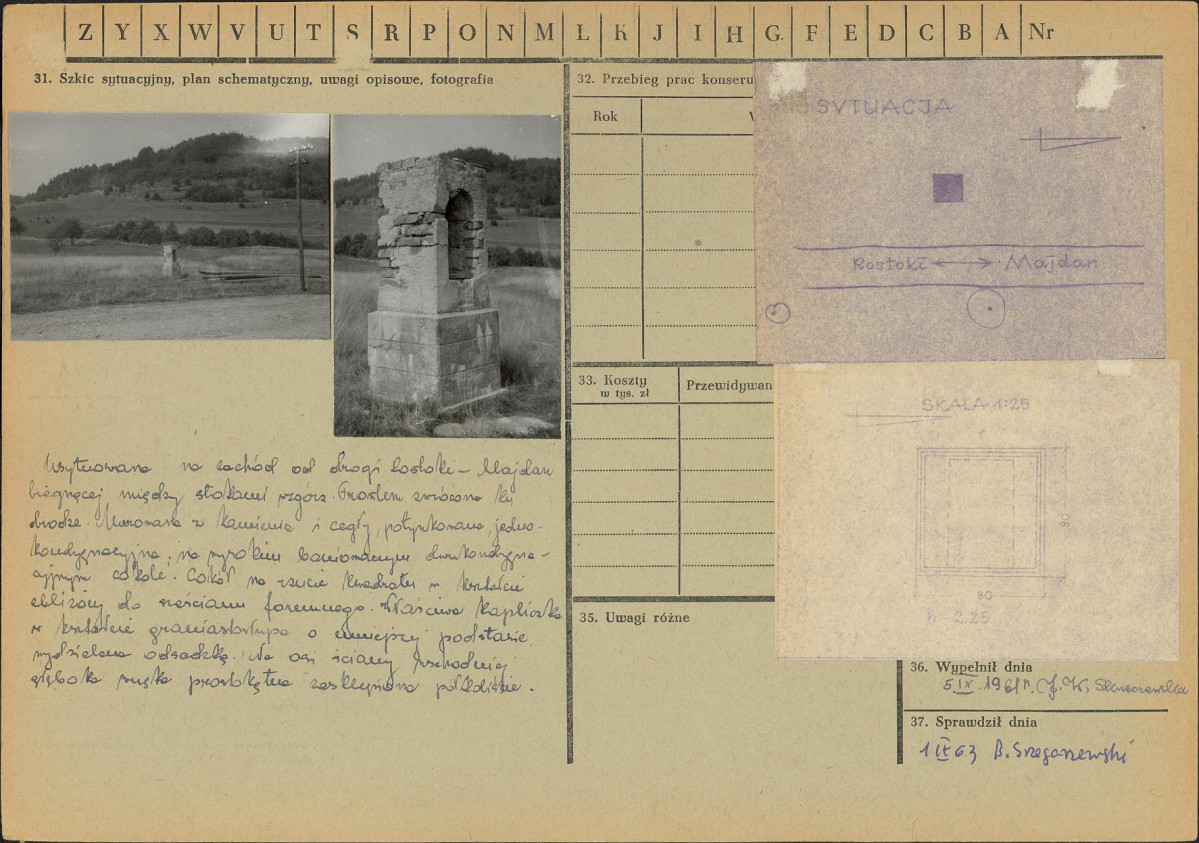 Z Y X W V U T S R P O N M L K J I H G F E D C B A Nr
31. Szkic sytuacyjny, plan schematyczny, uwagi opisowe, fotografia
Usytuowana na zachód od drogi Rostoki – Majdan
biegnącej między stokami wzgórz. Frontem zwrócona ku
drodze. Murowana z kamienia i cegły, potynkowana, jedno-
kondygnacyjna, na wysokim boniowanym dwukondygna-
cyjnym cokole. Cokół na rzucie kwadratu w kształcie
zbliżony do sześcianu foremnego. Właściwa kapliczka
w kształcie graniastosłupa o mniejszej podstawie
wydzielona odsadzką. Na osi ściany wschodniej
głęboka wnęka prostokątna zasklepiona półkoliście.
32. Przebieg prac konserw
Rok
SYTUACJA
Rostoki ⟷ Majdan
33. Koszty
w tys. zł
Przewidywan
SKALA 1:25
80
80
h = 2.25
35. Uwagi różne
36. Wypełnił dnia
5.IX.1961r.
37. Sprawdził dnia
1 IX 63 B.